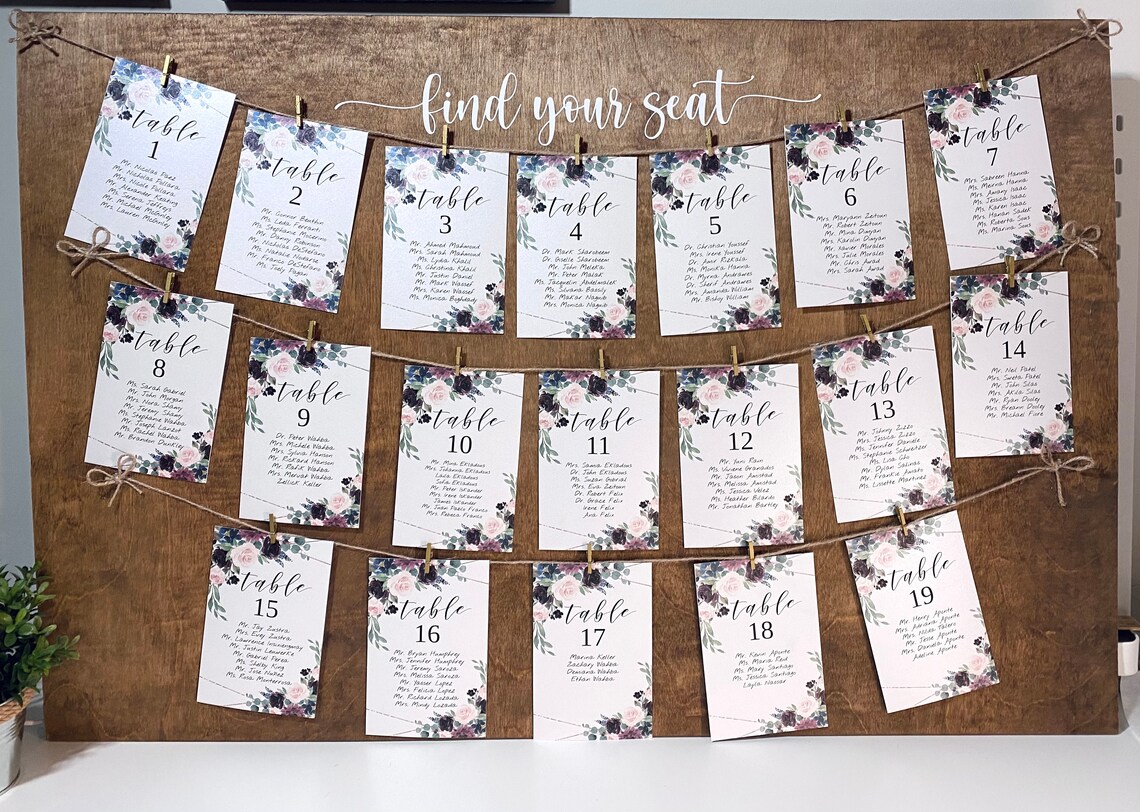 find your seat
table
1
Mr. Nicolas Paez
Mr. Nicholas Pollara
Mrs. Nicole Pollara
Mr. Alexander Keating
Ms. Serena Jefferys
Mr. Michael McGinley
Mrs. Lauren McGinley
table
2
Mr. Connor Beattie
Ms. Leda Ferranti
Ms. Stephanie Morreino
Mr. Danny Robinson
Mr. Nicholas DiStefano
Ms. Natalie
Mr. Franco DiStefano
Ms. Joely Fagan
table
3
Mr. Ahmed Mahmoud
Mrs. Sarah Mahmoud
Ms. Lydia Khalil
Ms. Christina Khalil
Mr. Justin Daniel
Mr. Mark Wassef
Mrs. Karen Wassef
Ms. Monica Boghdady
table
4
Dr. Mark Sharobeem
Dr. Giselle Sharobeem
Mr. John Meleka
Mr. Peter Malak
Ms. Jacquelin Abdelmalek
Ms. Silvana Bassily
Mr. Makar Naguib
Mrs. Monica Naguib
table
5
Dr. Christian Youssef
Mrs. Irene Youssef
Dr. Amir Rizkala
Ms. Monika Hanna
Dr. Myrna Andrawes
Dr. Sherif Andrawes
Mrs. Amanda William
Mr. Bishoy William
table
6
Mrs. Maryann Zeitoun
Mr. Robert Zeitoun
Mr. Mina Diwyan
Mrs. Karolin Diwyan
Mr. Xavier Morales
Mrs. Julie Morales
Mr. Chris Awad
Mrs. Sarah Awad
table
7
Mrs. Sabreen Hanna
Ms. Meirna Hanna
Mrs. Amany Isaac
Ms. Jessica Isaac
Ms. Karen Isaac
Mrs. Hanan Sadek
Mr. Roberto Sous
Ms. Marina Sous
table
8
Ms. Sarah Gabriel
Mr. John Morgan
Mrs. Nora Shamy
Mr. Jeremy Shamy
Ms. Stephanie Wadba
Mr. Joseph Lanzot
Ms. Rachel Wadba
Mr. Brandon Dunkley
table
9
Dr. Peter Wadba
Mrs. Michele Wadba
Mrs. Sylvia Hanson
Mr. Richard Hanson
Mr. Rafik Wadba
Mrs. Mervat Wadba
Zellick Keller
table
10
Mr. Mina Ekladious
Mrs. Julianna Ekladious
Luca Ekladious
Sofia Ekladious
Mr. Peter Iskander
Mrs. Irene Iskander
James Iskander
Mr. Juan Pablo Franco
Mrs. Rebeca Franco
table
11
Mrs. Samia Ekladious
Dr. John Ekladious
Ms. Suzan Gabriel
Mrs. Eva Zeitoun
Dr. Robert Felix
Dr. Grace Felix
Irene Felix
Ana Felix
table
12
Mr. Yuni Rawi
Ms. Viviene Granadus
Mr. Jason Amstad
Mrs. Melissa Amstad
Ms. Jessica Velez
Ms. Heather Bilards
Mr. Jonathan Bartley
table
13
Mr. Johnny Zizzo
Mrs. Jessica Zizzo
Ms. Jennifer Danielle
Ms. Stephanie Schweitzer
Ms. Lisa Cho
Mr. Dylan Salinas
Mr. Frankie Amato
Ms. Lissette Martinez
table
14
Mr. Neil Patel
Mrs. Sweta Patel
Mr. John Silas
Mrs. Akila Silas
Mr. Ryan Dooley
Mrs. Breann Dooley
Mr. Michael Fiore
table
15
Mr. Jay Zastra
Mrs. Emily Zastra
Mr. Lawrence
Mr. Justin Lennerke
Mr. Gabriel Perea
Ms. Shelley King
Mr. Jose Nuñez
Ms. Rosa Monterrosa
table
16
Mr. Bryan Humphrey
Mrs. Jennifer Humphrey
Mr. Jeremy Saroza
Mrs. Melissa Saroza
Mr. Yasser Lopez
Mrs. Felicia Lopez
Mr. Richard Lozada
Mrs. Mindy Lozada
table
17
Marina Keller
Zachary Wadba
Demiana Wadba
Ethan Wadba
table
18
Mr. Kevin Aponte
Ms. Maria Reid
Ms. Mary Santiago
Ms. Jessica Santiago
Layla Nassar
table
19
Mr. Henry Aponte
Mrs. Adriana Aponte
Mrs. Nilda Talero
Mr. Jesse Aponte
Mrs. Daniela Aponte
Adeline Aponte